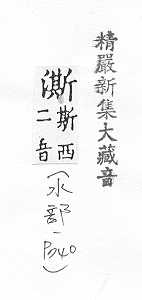 精嚴新集大藏音
澌
斯西
二音
(水部-P340)